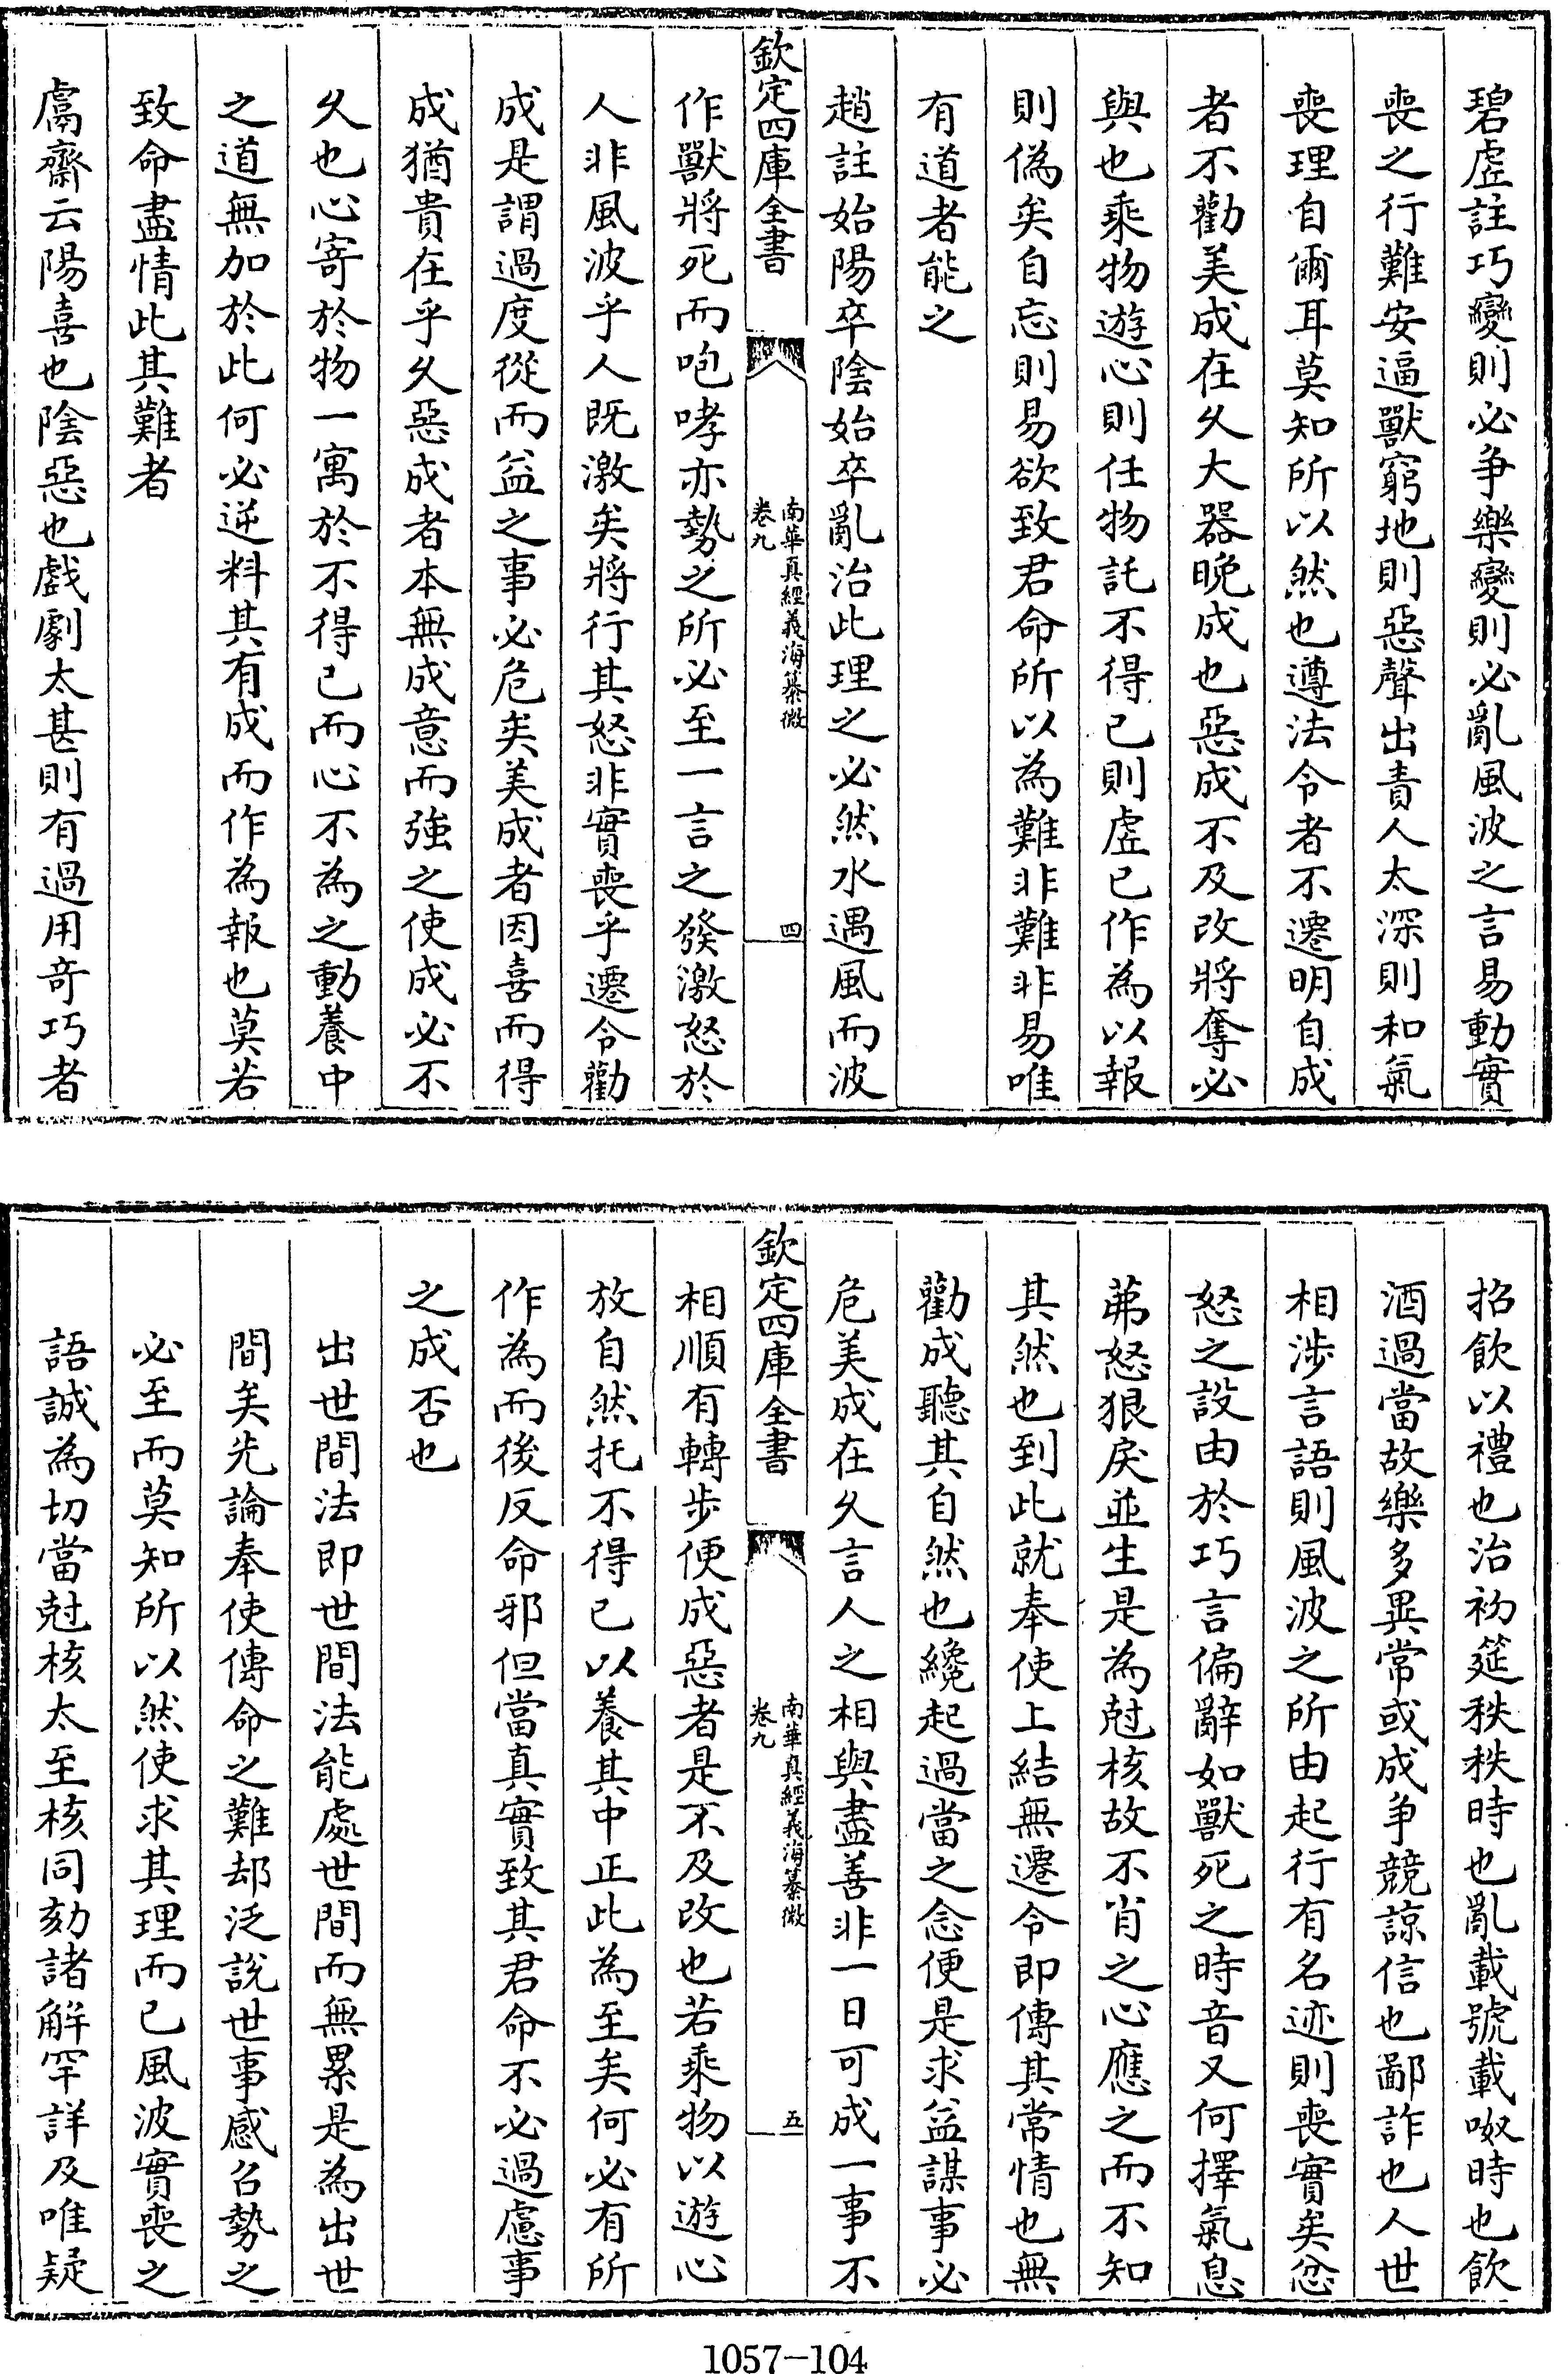 碧虚註巧變則必爭樂變則必亂風波之言易動實
喪之行難安逼獸窮地則惡聲出責人太深則和氣
喪理自爾耳莫知所以然也遵法令者不遷明自成
者不勸美成在久大器晚成也惡成不及改將奪必
與也乘物遊心則任物託不得已則虚已作為以報
則偽矣自忘則易欲致君命所以為難非難非易唯
有道者能之
趙註始陽卒陰始卒亂治此理之必然水遇風而波
欽定四庫全書
南華真經義海纂微
卷九
四
作獸將死而咆哮亦勢之所必至一言之發激怒於
人非風波乎人既激矣將行其怒非實喪乎遷令勸
成是謂過度從而益之事必危矣美成者因喜而得
成猶貴在乎久惡成者本無成意而強之使成必不
久也心寄於物一寓於不得已而心不為之動養中
之道無加於此何必逆料其有成而作為報也莫若
致命盡情此其難者
鬳齋云陽喜也陰惡也戲劇太甚則有過用奇巧者
招飲以禮也治初筵秩秩時也亂載號載呶時也飲
酒過當故樂多異常或成爭競諒信也鄙詐也人世
相涉言語則風波之所由起行有名迹則喪實矣忿
怒之設由於巧言偏辭如獸死之時音又何擇氣息
茀怒狠戾並生是為尅核故不肖之心應之而不知
其然也到此就奉使上結無遷令即傳其常情也無
勸成聽其自然也纔起過當之念便是求益謀事必
危美成在久言人之相與盡善非一日可成一事不
欽定四庫全書
南華真經義海纂微
卷九
五
相順有轉步便成惡者是不及改也若乘物以遊心
放自然托不得已以養其中正此為至矣何必有所
作為而後反命邪但當真實致其君命不必過慮事
之成否也
出世間法即世間法能處世間而無累是為出世
間矣先論奉使傳命之難却泛說世事感召勢之
必至而莫知所以然使求其理而已風波實喪之
語誠為切當尅核太至核同劾諸解罕詳及唯疑
1057-104